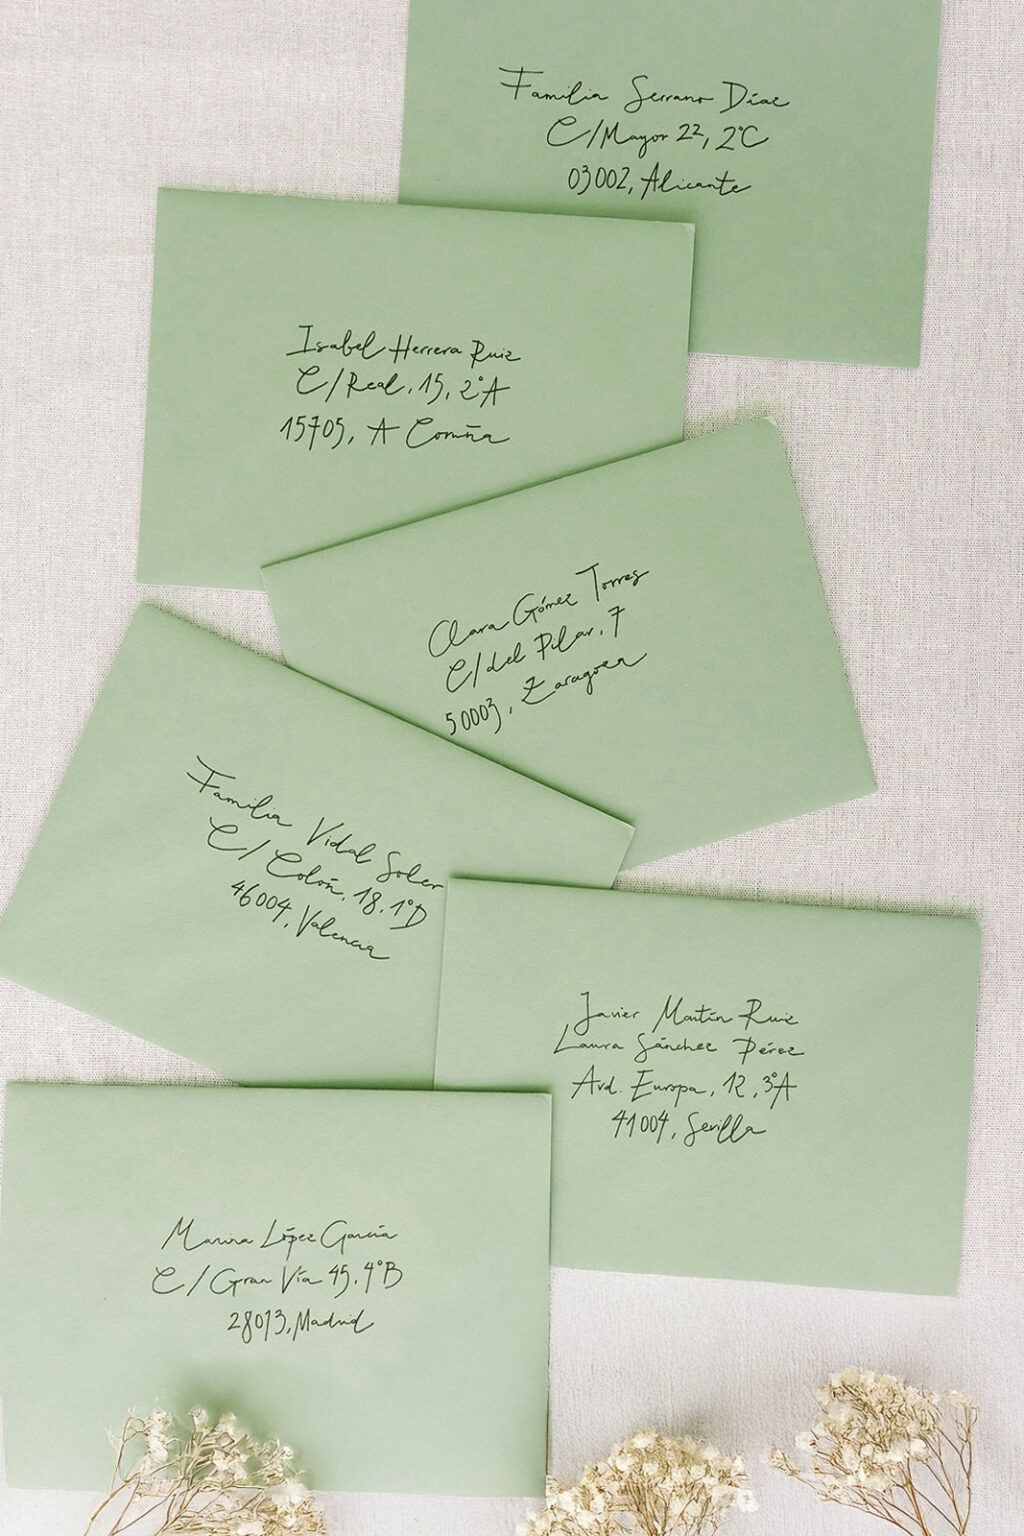 Familia Serrano Díaz
C/Mayor 22, 2ºC
03002, Alicante
Isabel Herrera Ruiz
C/Real, 15, 2ºA
15705, A Coruña
Clara Gómez Torres
C/del Pilar, 7
50003, Zaragoza
Familia Vidal Soler
C/Colón, 18, 1ºD
46004, Valencia
Javier Martín Ruiz
Laura Sánchez Pérez
Avd. Europa, 12, 3ºA
41004, Sevilla
Marina López García
C/Gran Vía 45, 4ºB
28013, Madrid